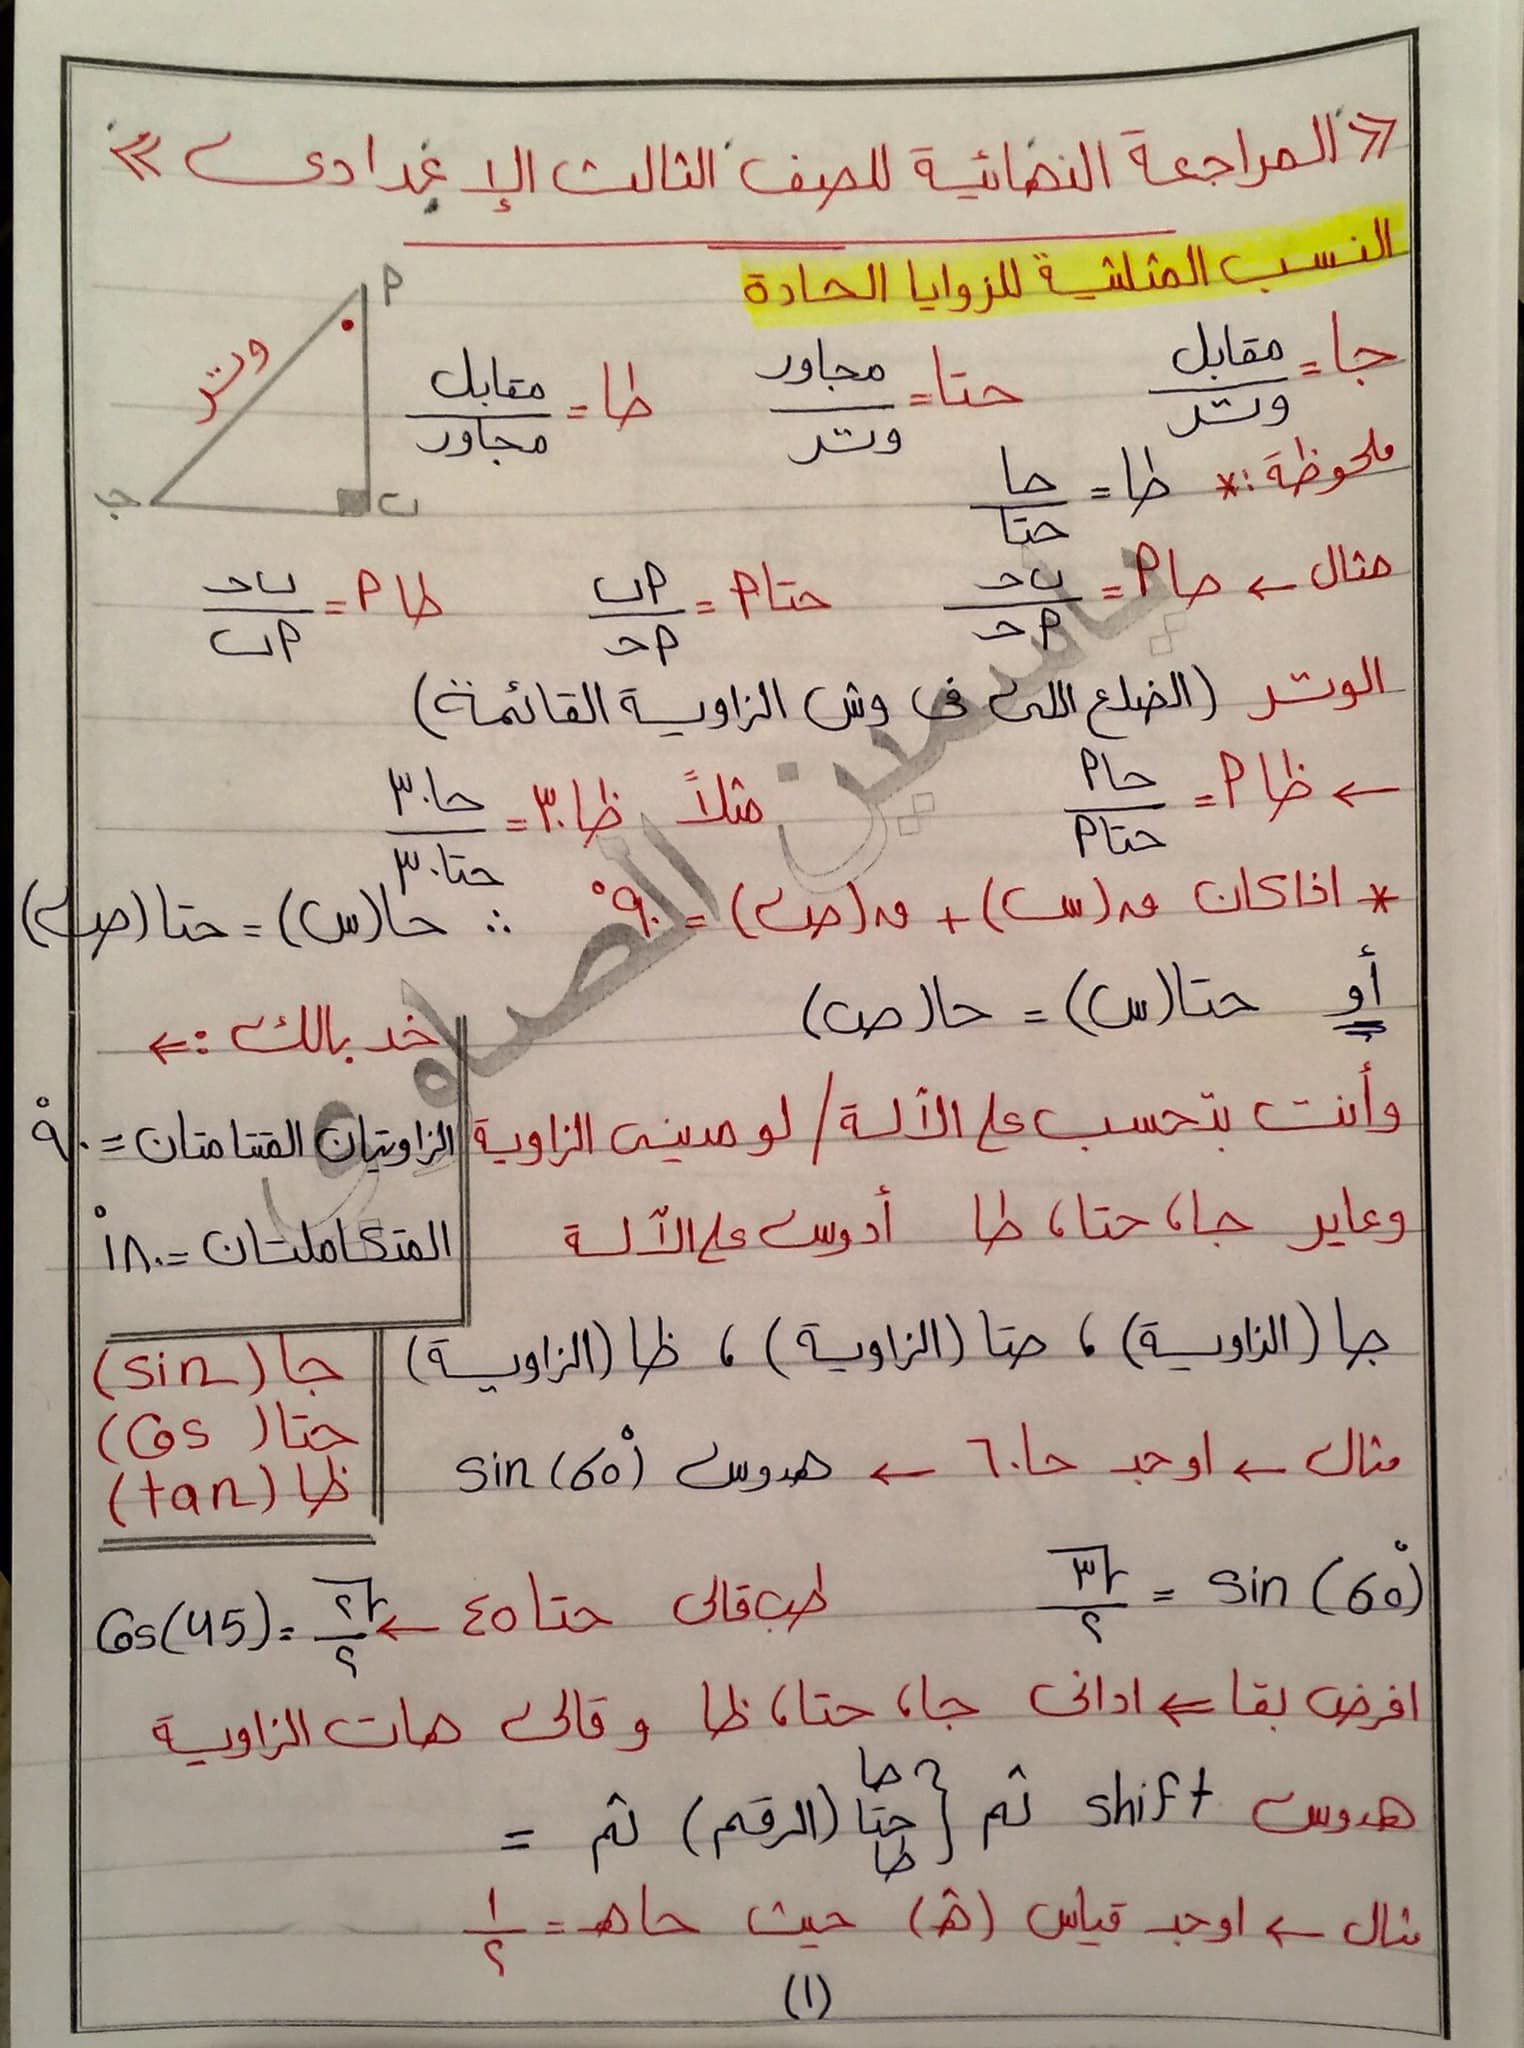 « المراجعة النهائية للصف الثالث الإعدادى »
النسب المثلثية للزوايا الحادة
جا = مقابل / وتر    حتا = مجاور / وتر    ظا = مقابل / مجاور
وتر
P
ب
جـ
ملحوظة :* ظا = حا / حتا
مثال ← حا P = ب حـ / P حـ    حتا P = P ب / P حـ    ظا P = ب حـ / P ب
الوتر (الضلع اللى فى وش الزاوية القائمة)
← ظا P = حا P / حتا P    مثلاً ظا ٣٠ = حا ٣٠ / حتا ٣٠
* اذا كان ق (س) + ق (ص) = ٩٠° ∴ حا (س) = حتا (ص)
أو حتا (س) = حا (ص)
خد بالك :←
الزاويتان المتتامتان = ٩٠°
المتكاملتان = ١٨٠°
وأنت بتحسب على الآلة / لو مدينى الزاوية
وعايز جا، حتا، ظا أدوس على الآلة
جا (الزاوية) ، حتا (الزاوية) ، ظا (الزاوية)
جا (sin)
حتا (Cos)
ظا (tan)
مثال ← اوجد حا ٦٠ ← هدوس sin (60°)
sin (60°) = √٣ / ٢    طب قالى حتا ٤٥ ← Cos(45) = √٢ / ٢
افرض بقا ← ادانى جا، حتا، ظا و قالى هات الزاوية
هدوس shift ثم { حا حتا ظا (الرقم) ثم =
مثال ← اوجد قياس (هـ) حيث حا هـ = ١ / ٢
(١)
ياسمين الصاوى